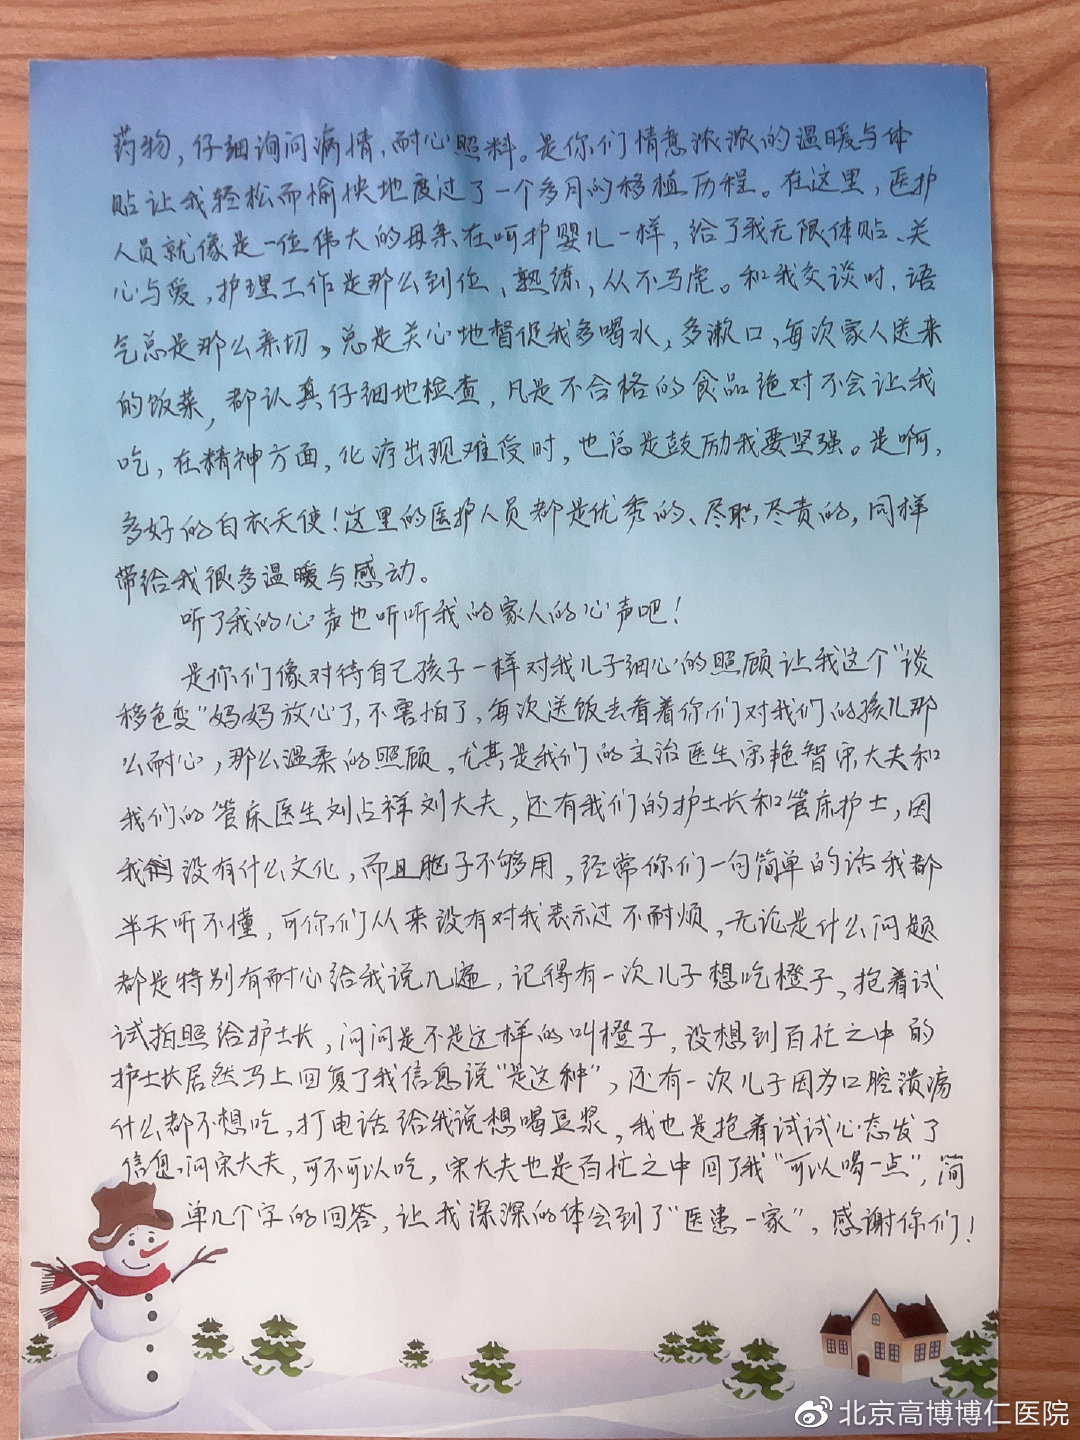 药物，仔细询问病情，耐心照料。是你们情意浓浓的温暖与体
贴让我轻松而愉快地度过了一个多月的移植历程。在这里，医护
人员就像是一位伟大的母亲在呵护婴儿一样，给了我无限体贴、关
心与爱，护理工作是那么到位、熟练，从不马虎。和我交谈时，语
气总是那么亲切，总是关心地督促我多喝水，多漱口，每次家人送来
的饭菜，都认真仔细地检查，凡是不合格的食品绝对不会让我
吃，在精神方面，化疗出现难受时，也总是鼓励我要坚强。是啊，
多好的白衣天使！这里的医护人员都是优秀的、尽职，尽责的，同样
带给我很多温暖与感动。
听了我的心声也听听我的家人的心声吧！
是你们像对待自己孩子一样对我儿子细心的照顾让我这个“谈
移色变”妈妈放心了，不害怕了，每次送饭去看着你们对我们的孩儿那
么耐心，那么温柔的照顾，尤其是我们的主治医生宋艳智宋大夫和
我们的管床医生刘占祥刘大夫，还有我们的护士长和管床护士，因
我没有什么文化，而且脑子不够用，经常你们一句简单的话我都
半天听不懂，可你们从来没有对我表示过不耐烦，无论是什么问题
都是特别有耐心给我说几遍，记得有一次儿子想吃橙子，抱着试
试拍照给护士长，问问是不是这样的叫橙子，没想到百忙之中的
护士长居然马上回复了我信息说“是这种”，还有一次儿子因为口腔溃疡
什么都不想吃，打电话给我说想喝豆浆，我也是抱着试试心态发了
信息问宋大夫，可不可以吃，宋大夫也是百忙之中回了我“可以喝一点”，简
单几个字的回答，让我深深的体会到了“医患一家”，感谢你们！
北京高博博仁医院